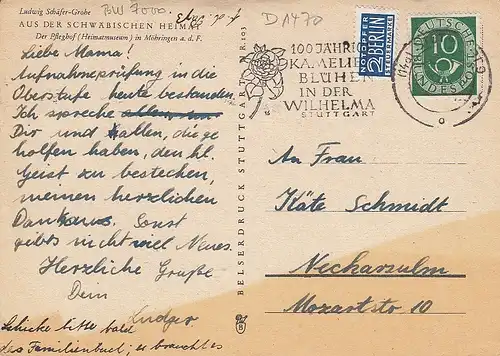 Ludwig Schäfer-Grohe
BW 7000
AUS DER SCHWÄBISCHEN HEIMAT
Der Pfleghof (Heimatmuseum) in Möhringen a. d. F.
D 1470
Liebe Mama!
Aufnahmeprüfung in die
Oberstufe heute bestanden.
Ich spreche allen
Dir und allen, die ge
holfen haben, den hl.
Geist zu bestechen,
meinen herzlichen
Dank aus. Sonst
gibts nicht viel Neues.
Herzliche Grüße
Dein
Ludger
Schicke bitte bald
das Familienbuch; es braucht es
BELSERDRUCK STUTTGART
R.103
B
100 JÄHRIGE
KAMELIEN
BLÜHEN
IN DER
WILHELMA
STUTTGART
NOTOPFER
2 BERLIN
STEUERMARKE
DEUTSCHE
BUNDESPOST
10
An Frau
Käte Schmidt
Neckarsulm
Mozartstr 10